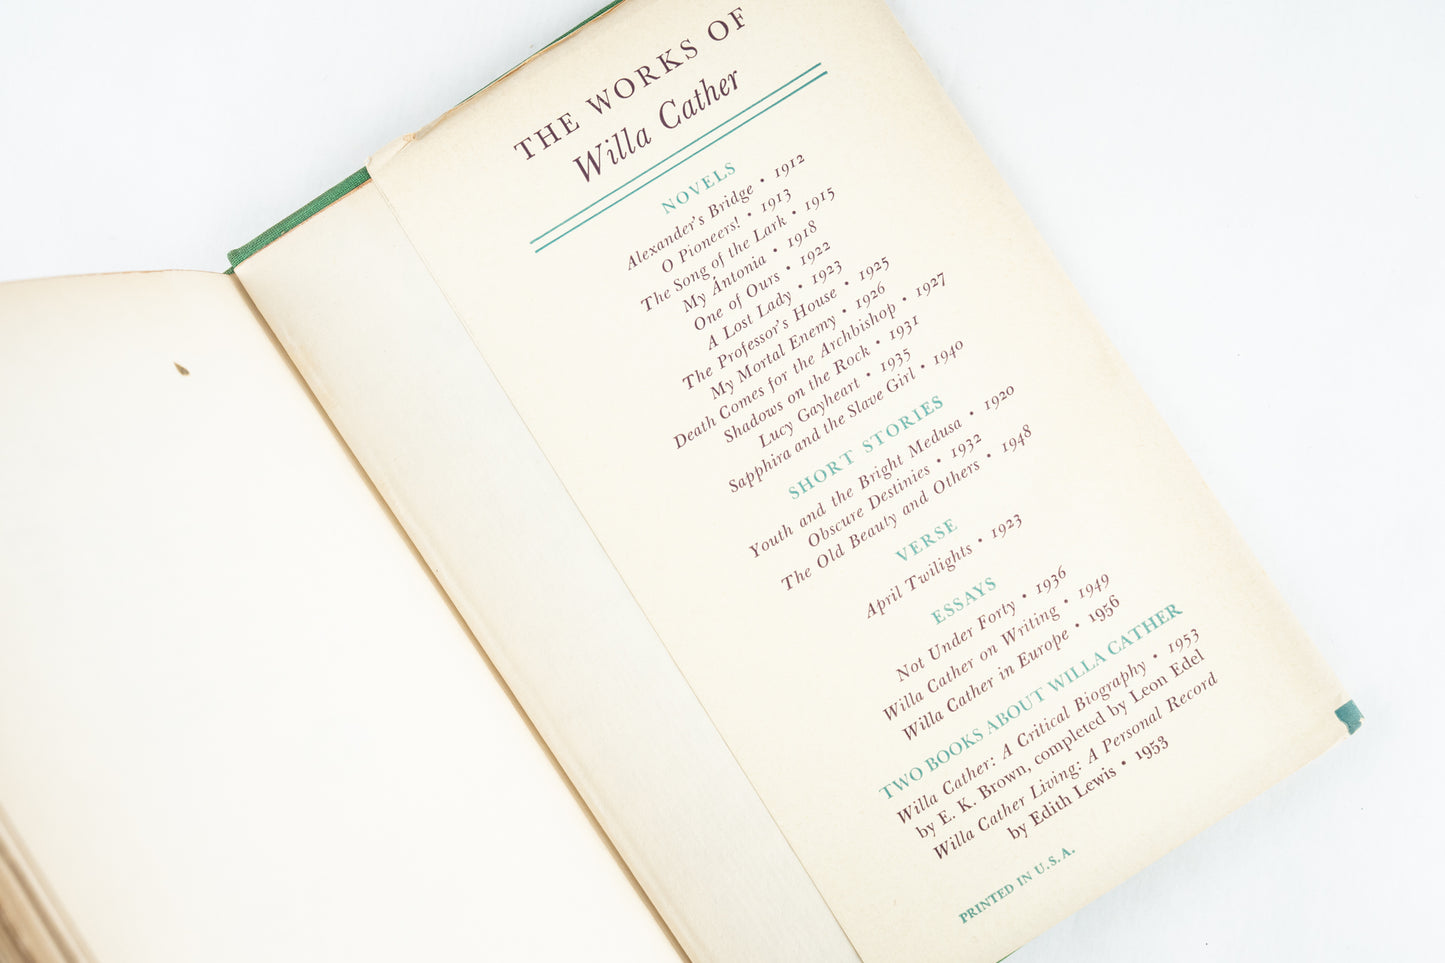 THE WORKS OF
Willa Cather
NOVELS
Alexander's Bridge • 1912
O Pioneers! • 1913
The Song of the Lark • 1915
My Ántonia • 1918
One of Ours • 1922
A Lost Lady • 1923
The Professor's House • 1925
My Mortal Enemy • 1926
Death Comes for the Archbishop • 1927
Shadows on the Rock • 1931
Lucy Gayheart • 1935
Sapphira and the Slave Girl • 1940
SHORT STORIES
Youth and the Bright Medusa • 1920
Obscure Destinies • 1932
The Old Beauty and Others • 1948
VERSE
April Twilights • 1923
ESSAYS
Not Under Forty • 1936
Willa Cather on Writing • 1949
Willa Cather in Europe • 1956
TWO BOOKS ABOUT WILLA CATHER
Willa Cather: A Critical Biography • 1953
by E. K. Brown, completed by Leon Edel
Willa Cather Living: A Personal Record
by Edith Lewis • 1953
PRINTED IN U.S.A.